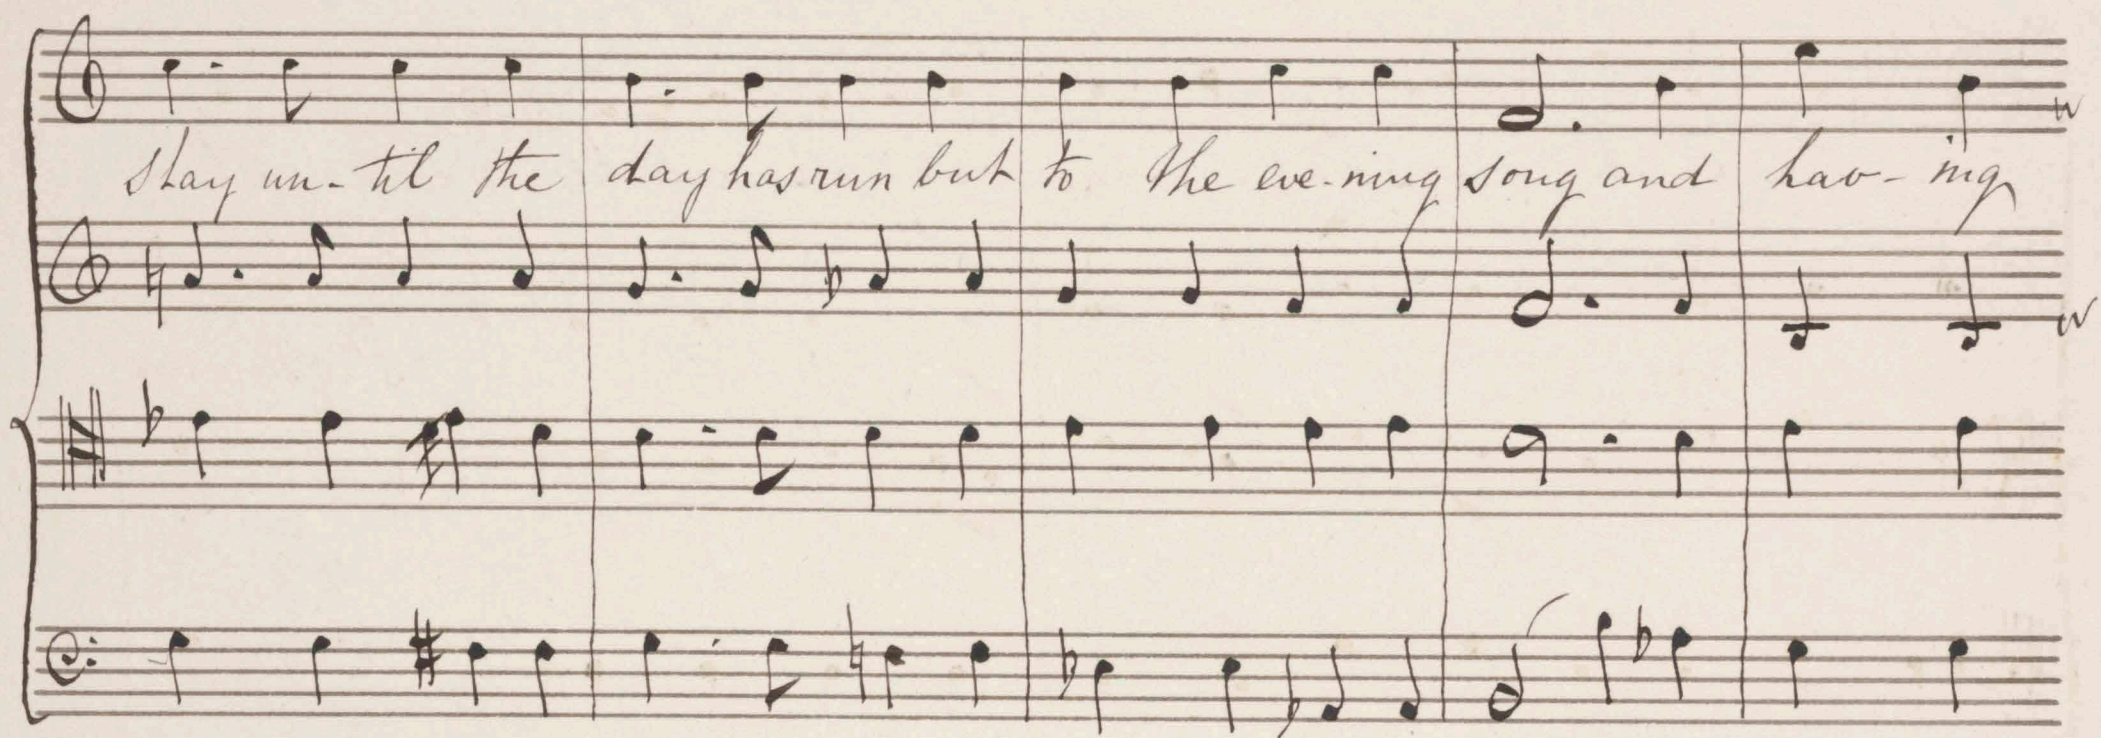 stay un-til the day has run but to the eve-ning song and hav-ing